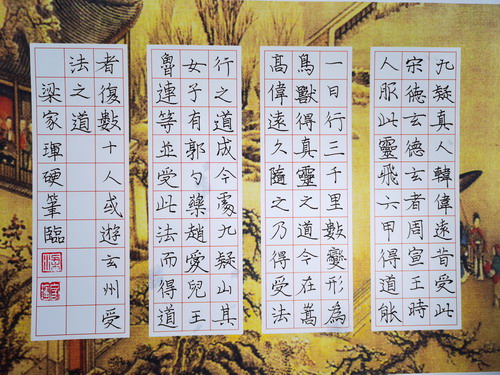 九疑真人韓偉遠昔受此
宋德玄德玄者周宣王時
人服此靈飛六甲得道能
一日行三千里數變形為
鳥獸得真靈之道今在嵩
高偉遠久隨之乃得受法
行之道成今處九疑山其
女子有郭勺藥趙愛兒王
魯連等並受此法而得道
者復數十人或遊玄州受
法之道
梁家琿硬筆臨